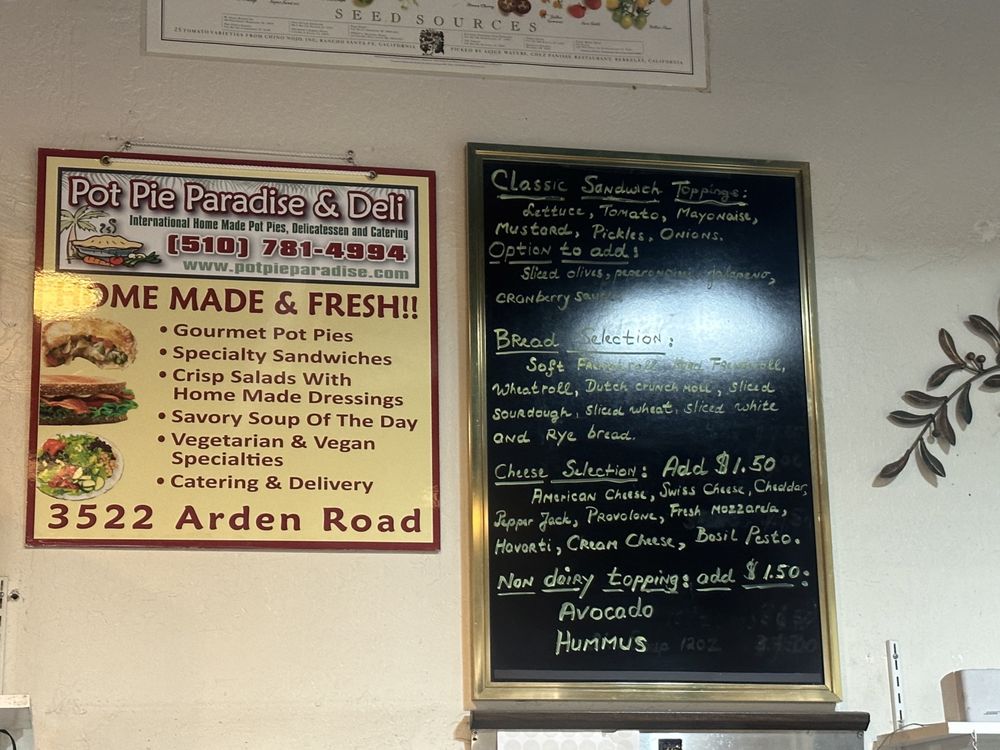 SEED SOURCES
25 TOMATO VARIETIES FROM CHINO NOJO, INC, RANCHO SANTA FE, CALIFORNIA
PICKED BY ALICE WATERS, CHEZ PANISSE RESTAURANT, BERKELEY, CALIFORNIA
Pot Pie Paradise & Deli
International Home Made Pot Pies, Delicatessen and Catering
(510) 781-4994
www.potpieparadise.com
HOME MADE & FRESH!!
• Gourmet Pot Pies
• Specialty Sandwiches
• Crisp Salads With
Home Made Dressings
• Savory Soup Of The Day
• Vegetarian & Vegan
Specialties
• Catering & Delivery
3522 Arden Road
Classic Sandwich Toppings:
Lettuce, Tomato, Mayonaise,
Mustard, Pickles, Onions.
Option to add:
Sliced olives, peperoncini, jalapeno,
cranberry sauce
Bread Selection:
Soft French roll,
Wheat roll, Dutch crunch roll, sliced
sourdough, sliced wheat, sliced white
and Rye bread.
Cheese Selection: Add $1.50
American Cheese, Swiss Cheese, Cheddar,
Pepper Jack, Provolone, Fresh mozzarela,
Havarti, Cream Cheese, Basil Pesto.
Non dairy topping: add $1.50:
Avocado
Hummus
12oz